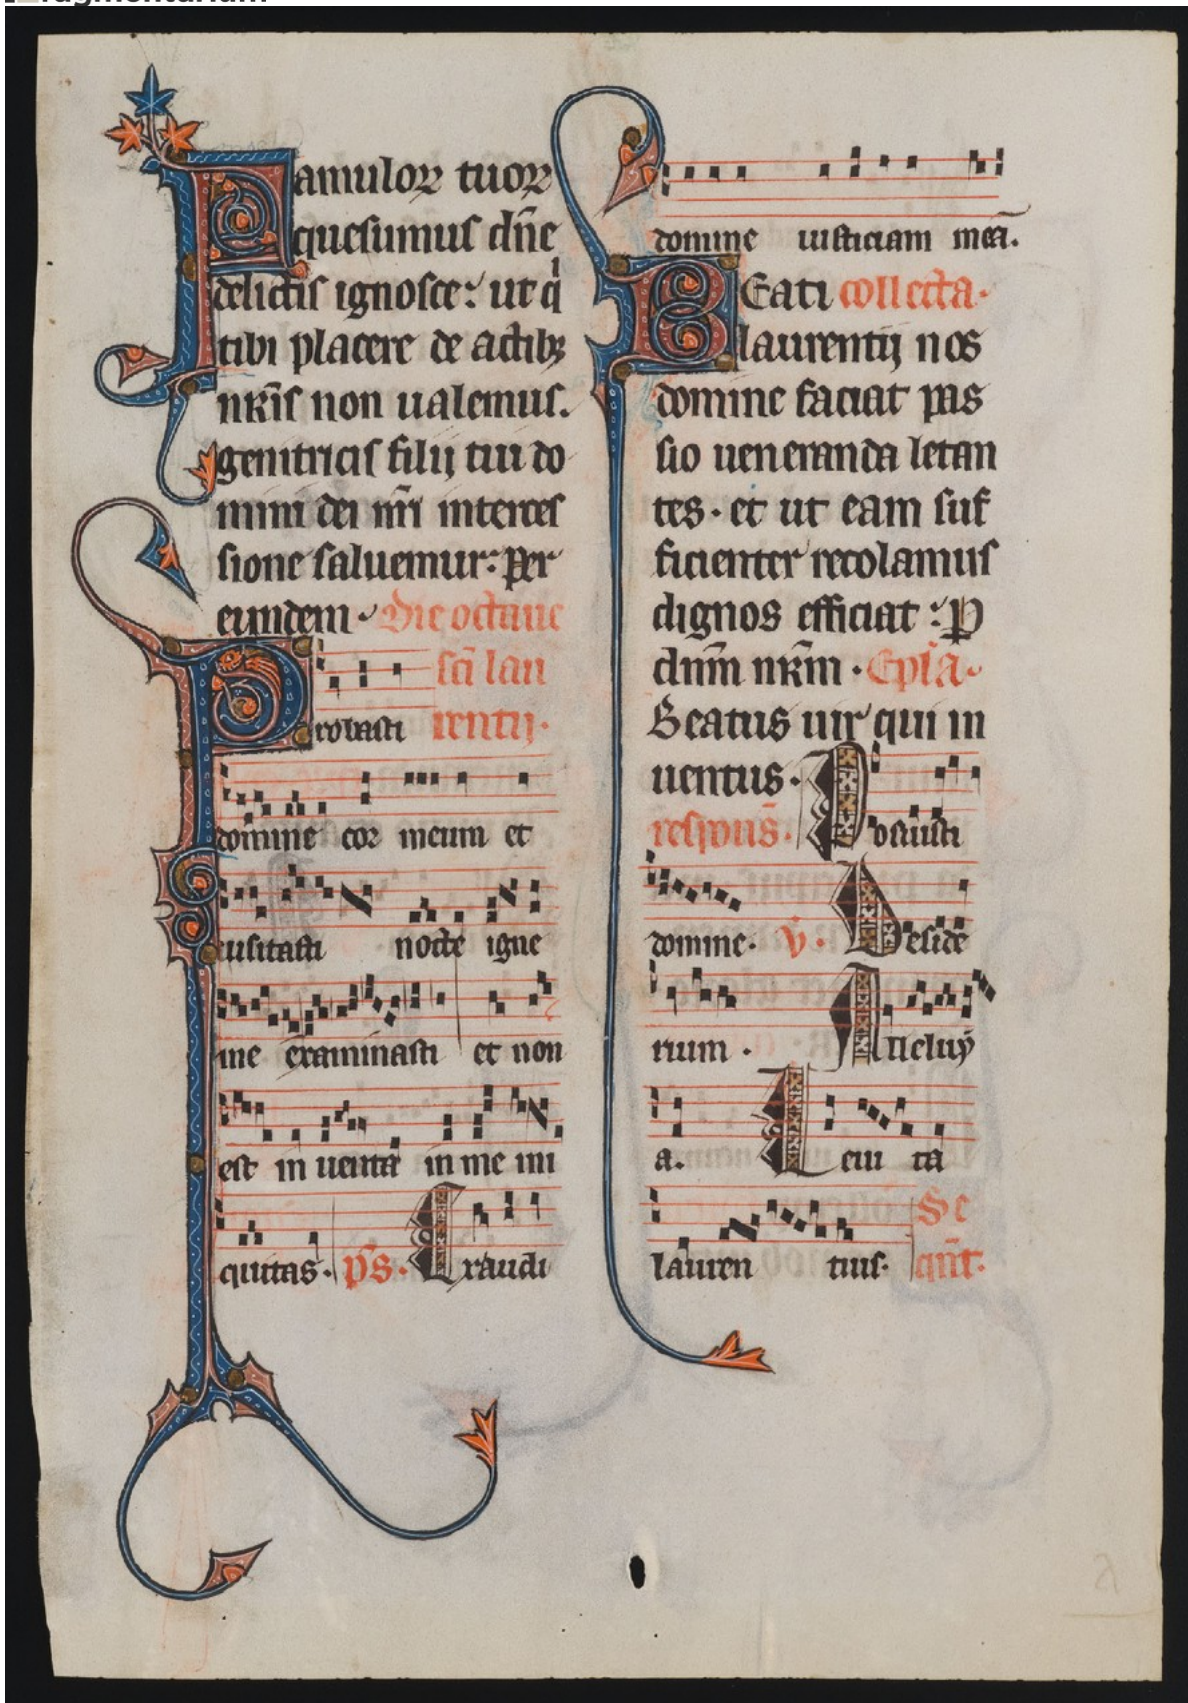 Famuloꝝ tuoꝝ
quesumus dn̄e
delictis ignosce: ut q̇
tibi placere de actibꝫ
nr̄is non ualemus.
genitricis filij tui do
mini dei nr̄i interces
sione saluemur: Per
eundem. Die octaue
sc̄i lau
Probasti rentij.
domine cor meum et
uisitasti nocte igne
me examinasti et non
est in uenta in me ini
quitas. p̄s. Exaudi
domine iusticiam meā.
BEati collecta.
laurentij nos
domine faciat pas
sio ueneranda letan
tes. et ut eam suf
ficienter recolamus
dignos efficiat: P̱
dn̄m nr̄m. Epl̄a.
Beatus uir qui in
uentus.
respons̄. Posuisti
domine. v̄. Deside
rium. Alleluy
a. Leui ta
lauren tius. Se
qūt.